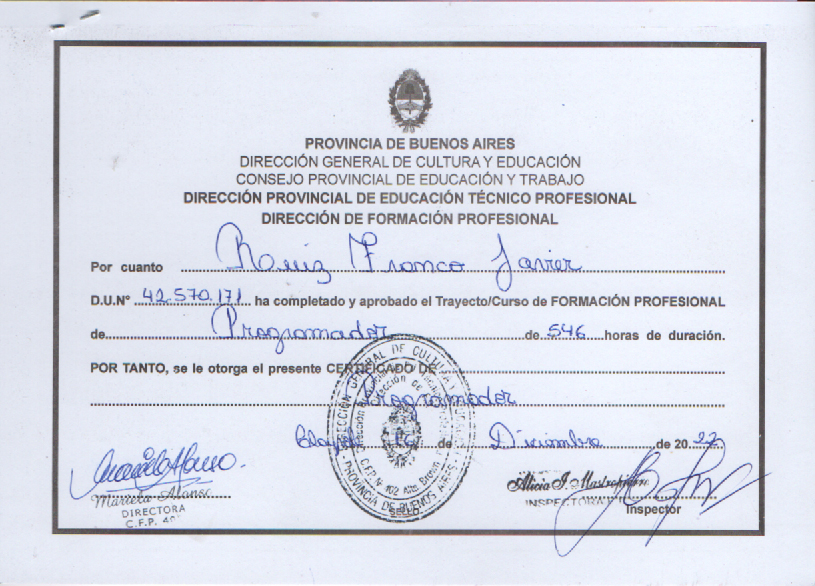 PROVINCIA DE BUENOS AIRES
DIRECCIÓN GENERAL DE CULTURA Y EDUCACIÓN
CONSEJO PROVINCIAL DE EDUCACIÓN Y TRABAJO
DIRECCIÓN PROVINCIAL DE EDUCACIÓN TÉCNICO PROFESIONAL
DIRECCIÓN DE FORMACIÓN PROFESIONAL
Por cuanto Ruiz Franco Javier
D.U.Nº 42.570.171 ha completado y aprobado el Trayecto/Curso de FORMACIÓN PROFESIONAL
de Programador de 546 horas de duración.
POR TANTO, se le otorga el presente CERTIFICADO DE
Programador
de Diciembre de 2022
DIRECCIÓN GENERAL DE CULTURA Y
C.F.P. Nº 402 Alte Brown
PROVINCIA DE BUENOS AIRES
SELLO
Mariela Alonso
DIRECTORA
C.F.P.
Alicia J.
INSPECTORA
Inspector